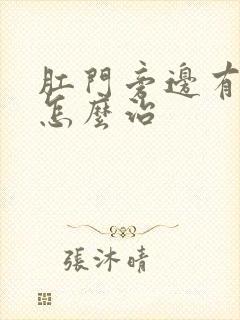 肛門旁邊有
怎麼治
張沐晴